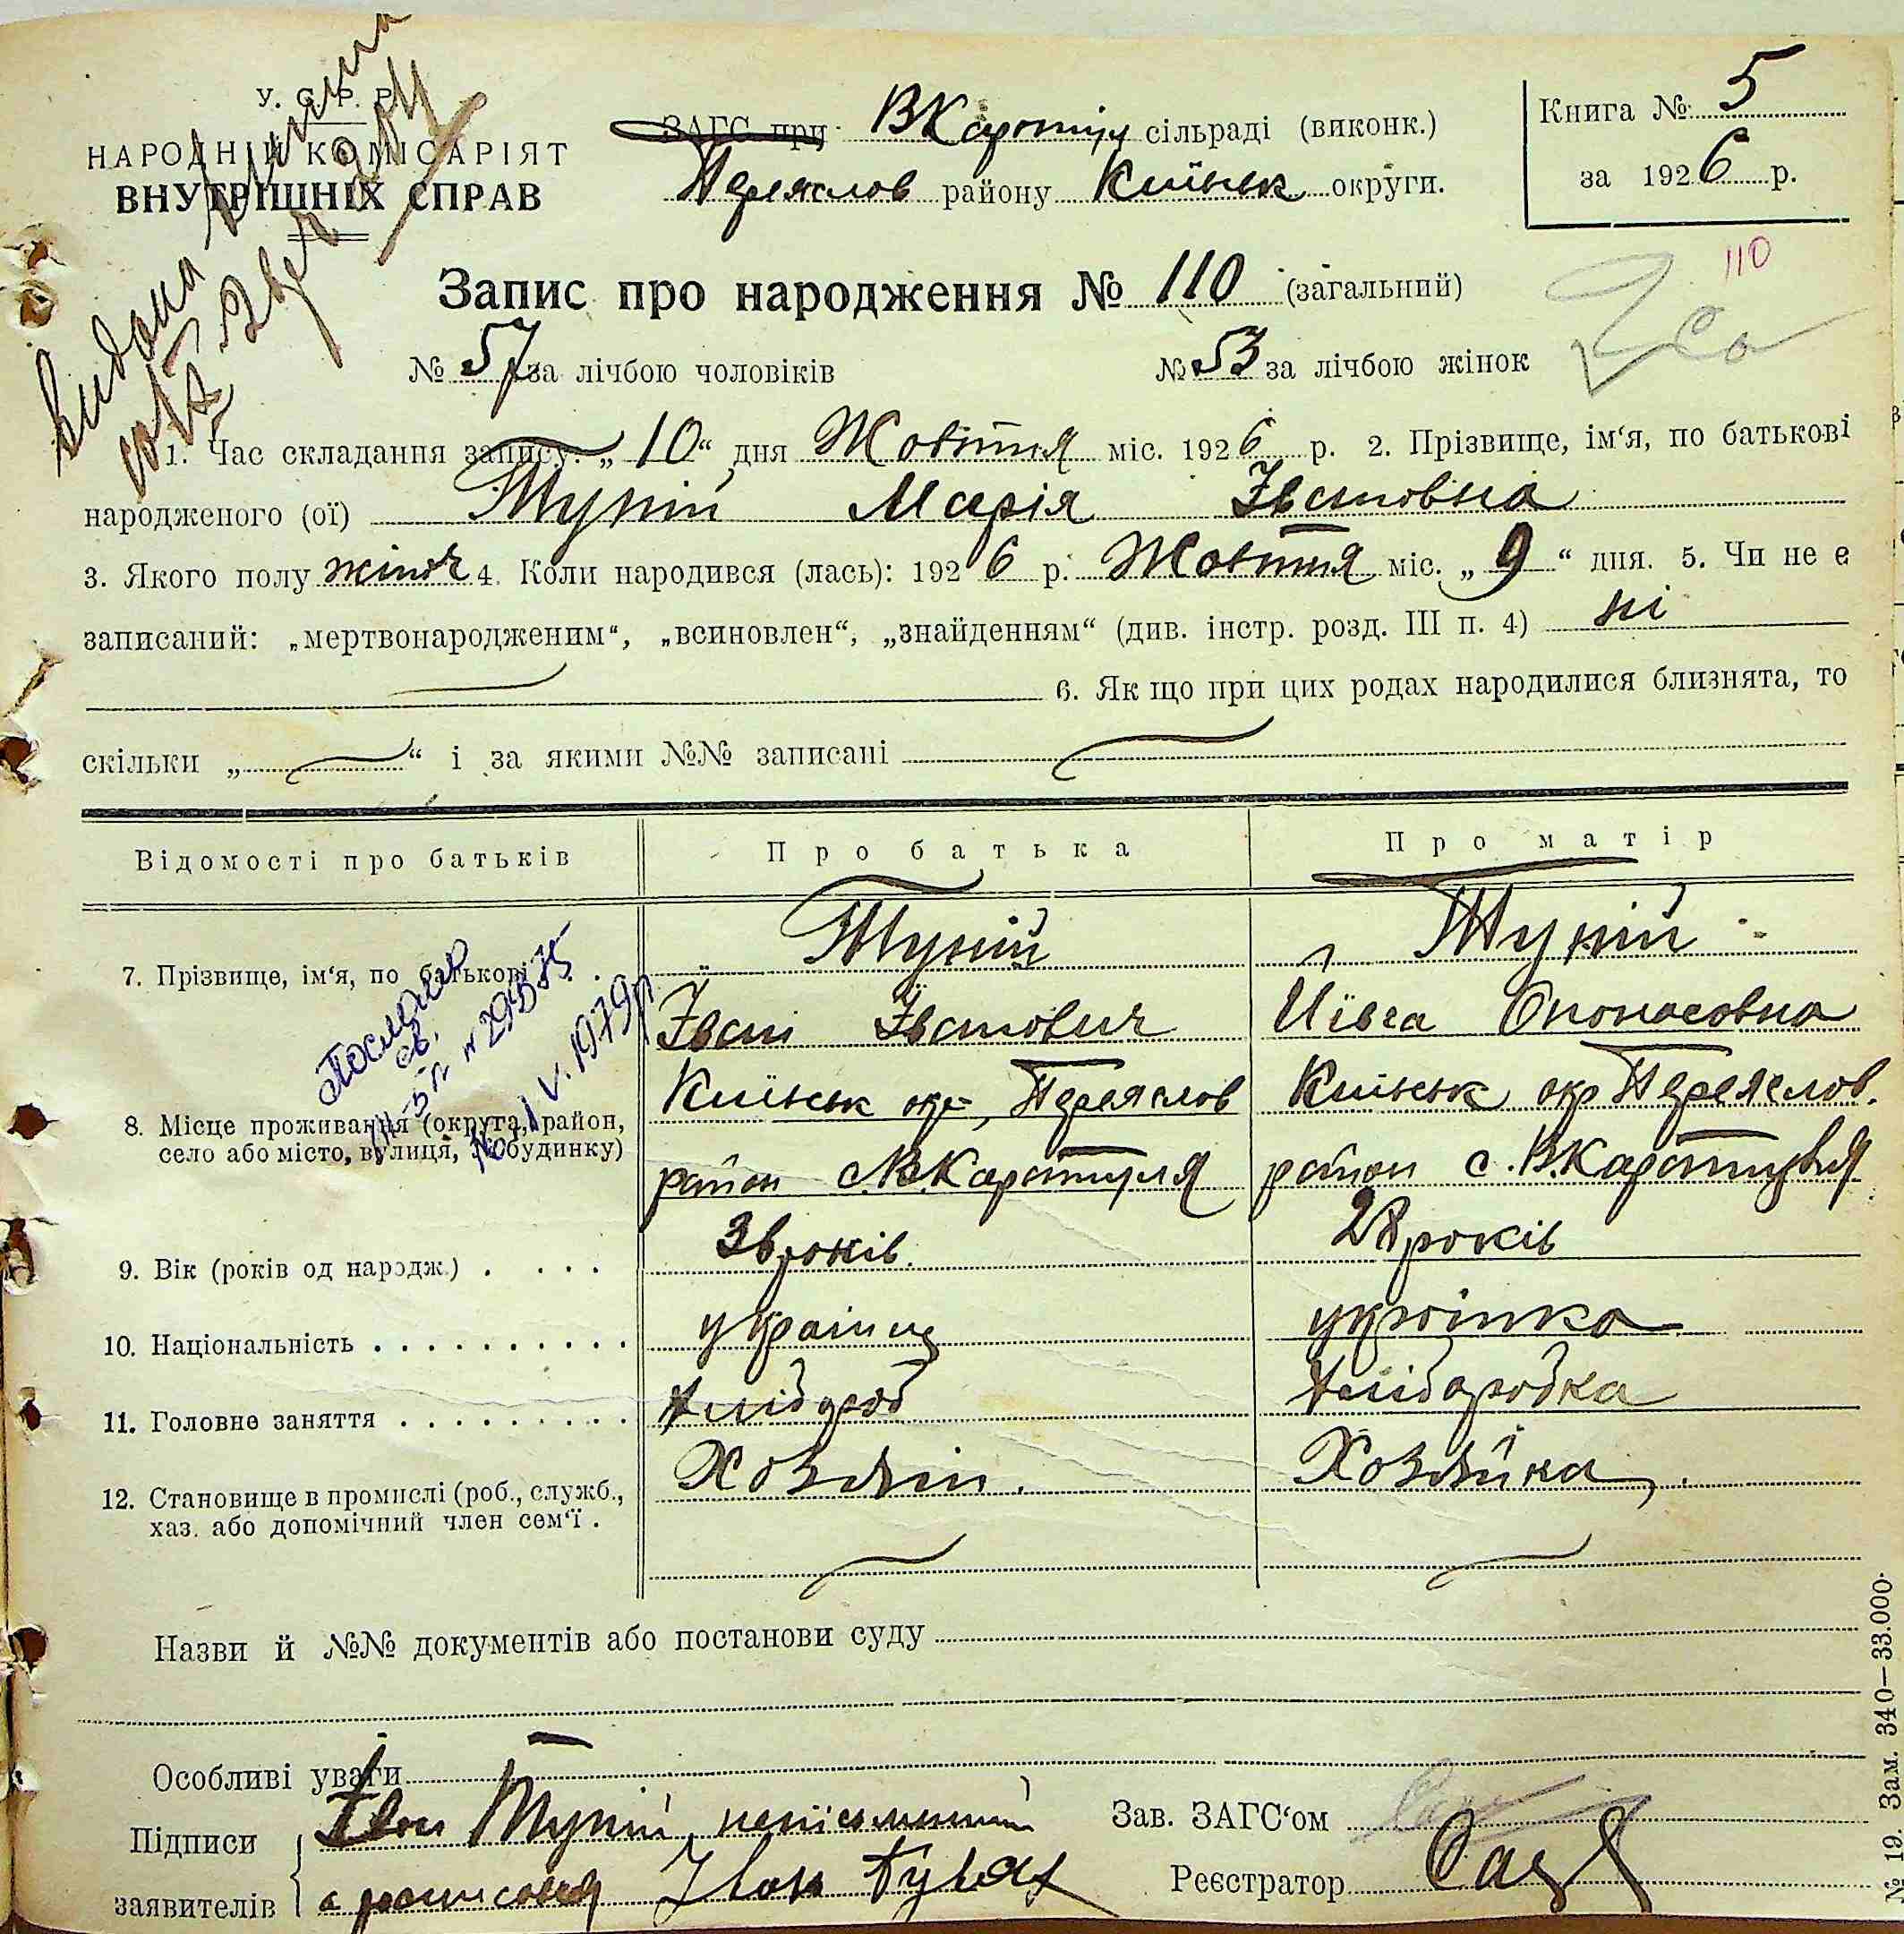 У. С. Р. Р.
НАРОДНІЙ КОМІСАРІЯТ
ВНУТРІШНІХ СПРАВ
ЗАГС при ВКаратул сільраді (виконк.)
Переяслов району Київськ округи.
Книга № 5
за 1926 р.
видана
110
Запис про народження № 110 (загальний)
№ 57 за лічбою чоловіків № 53 за лічбою жінок
1. Час складання запису: „10“ дня Жовтня міс. 1926 р. 2. Прізвище, ім‘я, по батькові
народженого (ої) Тупій Марія Івановна
3. Якого полу жіноч 4. Коли народився (лась): 1926 р. Жовтня міс. „9“ дня. 5. Чи не є
записаний: „мертвонародженим“, „всиновлен“, „знайденням“ (див. інстр. розд. III п. 4) ні
6. Як що при цих родах народилися близнята, то
скільки „ “ і за якими №№ записані
Відомості про батьків Про батька Про матір
7. Прізвище, ім‘я, по батькові Тупій Тупій
Іван Іванович Ївга Опонасовна
8. Місце проживання (округа, район, Київськ окр, Переяслов Київськ окр Переяслов.
село або місто, вулиця, № будинку) район с.В.Каратуля район с.В.Каратуля
9. Вік (років од народж.) . . . . . 36 років. 28 років
10. Національність . . . . . . . . . . українц українка
11. Головне заняття . . . . . . . . . хлібороб хліборобка
12. Становище в промислі (роб., служб., Хозяїн. Хозяйка
хаз. або допомічний член сем‘ї .
1979р
Назви й №№ документів або постанови суду
Особливі уваги
Підписи Іван Тупій неписьменний
Зав. ЗАГС‘ом
заявителів а росписався Іван
Реєстратор
№ 19. Зам. 340—33.000.